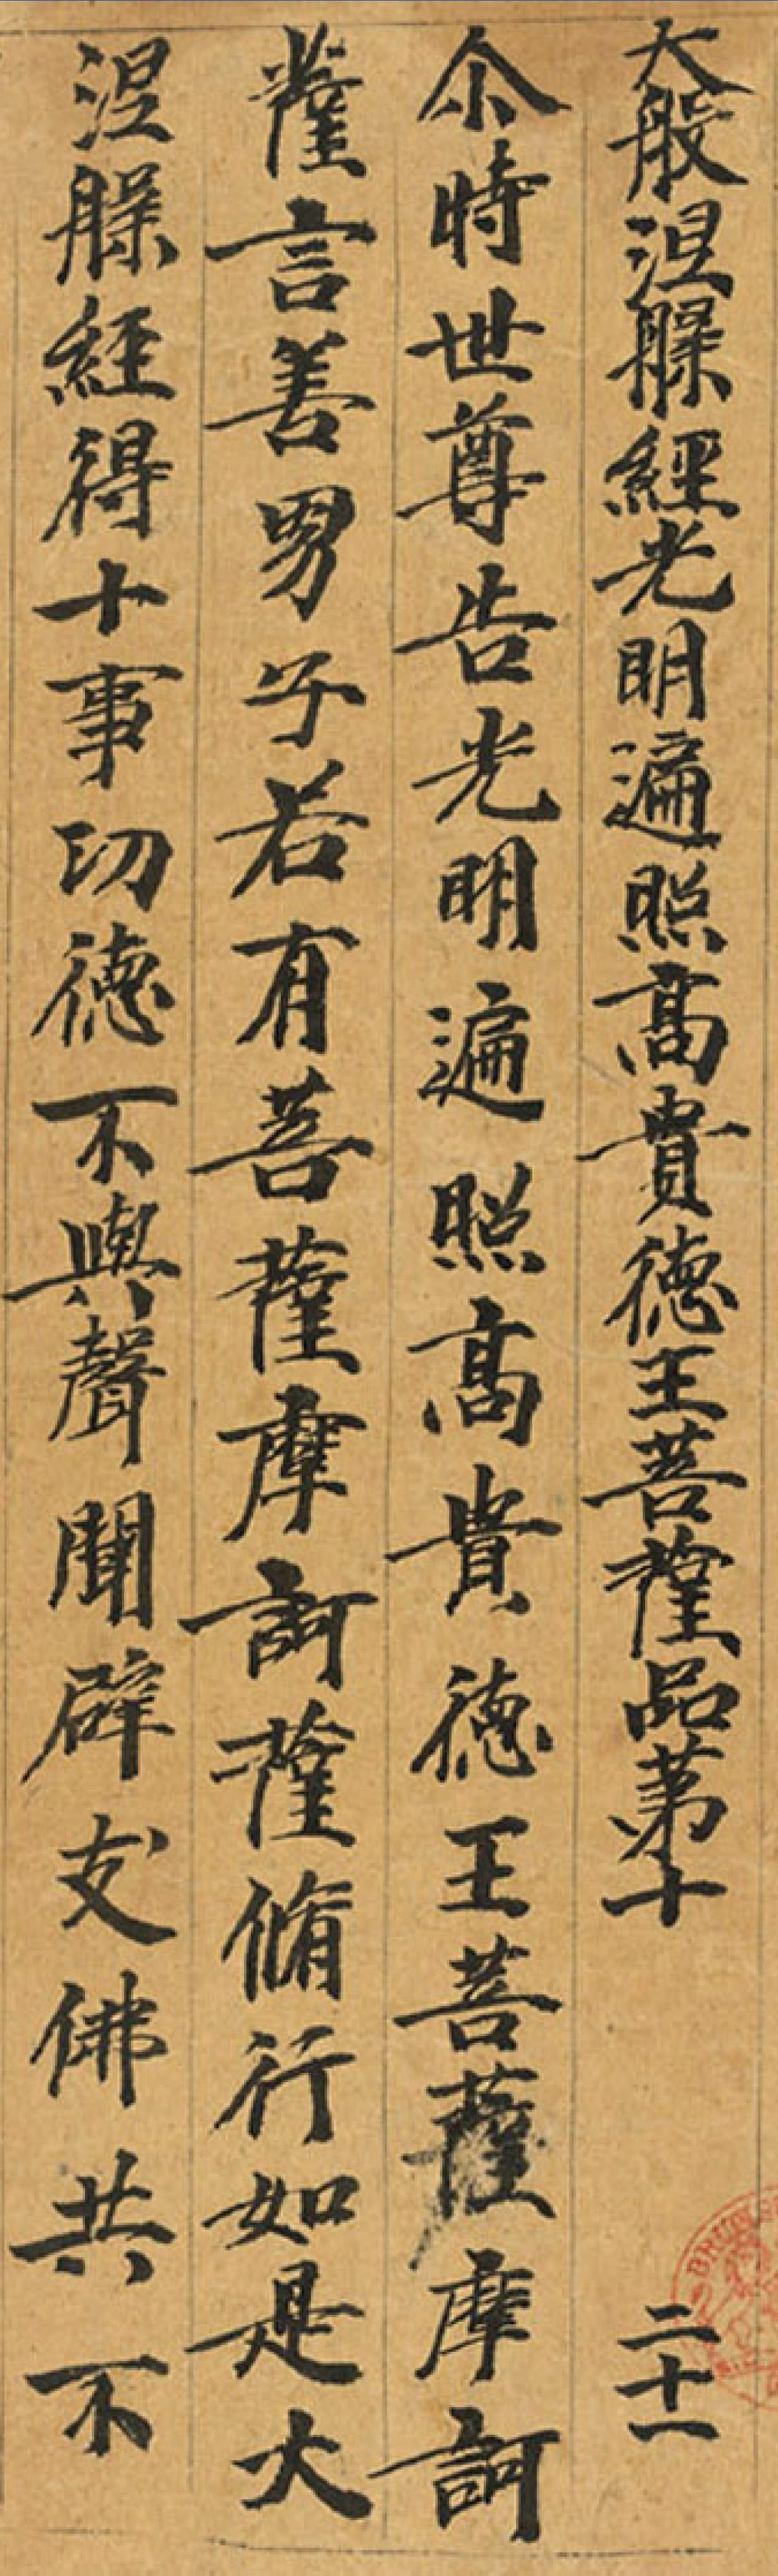 大般涅槃經光明遍照高貴德王菩薩品第十 二十一
尒時世尊告光明遍照高貴德王菩薩摩訶
薩言善男子若有菩薩摩訶薩脩行如是大
涅槃經得十事功德不與聲聞辟支佛共不